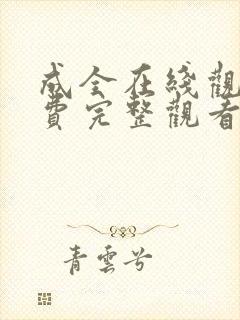 成全在线觀
費完整觀看
青雲兮